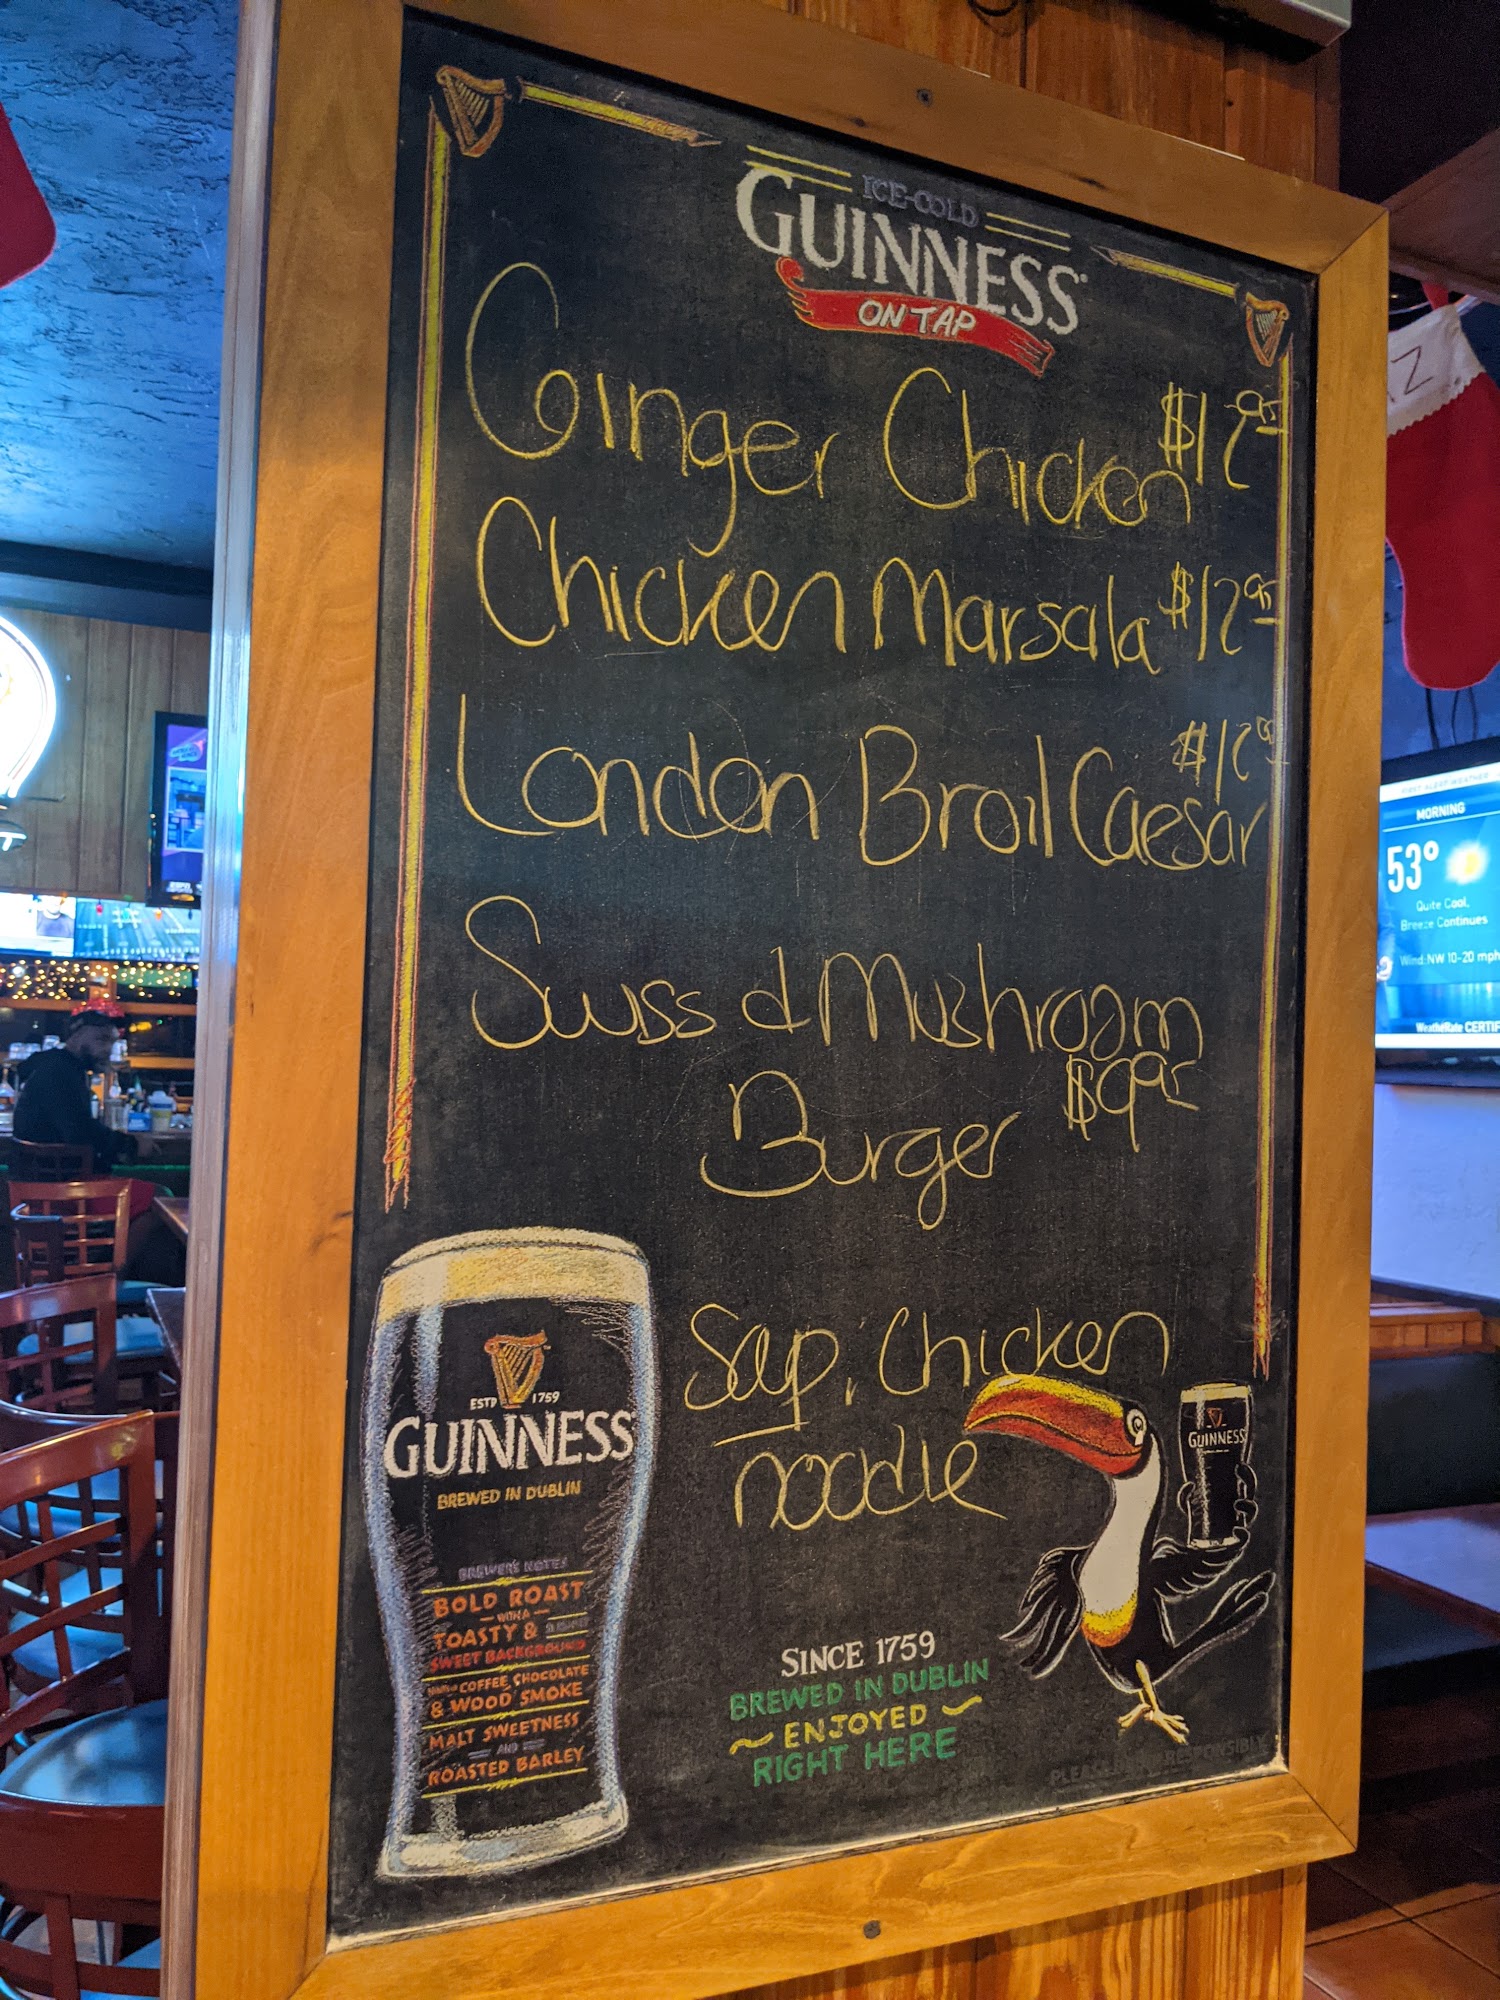 ICE-COLD
GUINNESS
ON TAP
Ginger Chicken $12.95
Chicken Marsala $12.95
London Broil Caesar
Swiss & Mushroom
Burger $9.95
Soup: Chicken
noodle
ESTD 1759
GUINNESS
BREWED IN DUBLIN
BREWER'S NOTES
BOLD ROAST
WITH A
TOASTY &
SWEET BACKGROUND
COFFEE, CHOCOLATE
& WOOD SMOKE
MALT SWEETNESS
AND
ROASTED BARLEY
GUINNESS
SINCE 1759
BREWED IN DUBLIN
ENJOYED
RIGHT HERE
PLEASE DRINK RESPONSIBLY
Z
FIRST ALERT WEATHER
MORNING
53°
Quite Cool,
Breeze Continues
Wind: NW 10-20 mph
WeatheRate CERTIF
ESPN